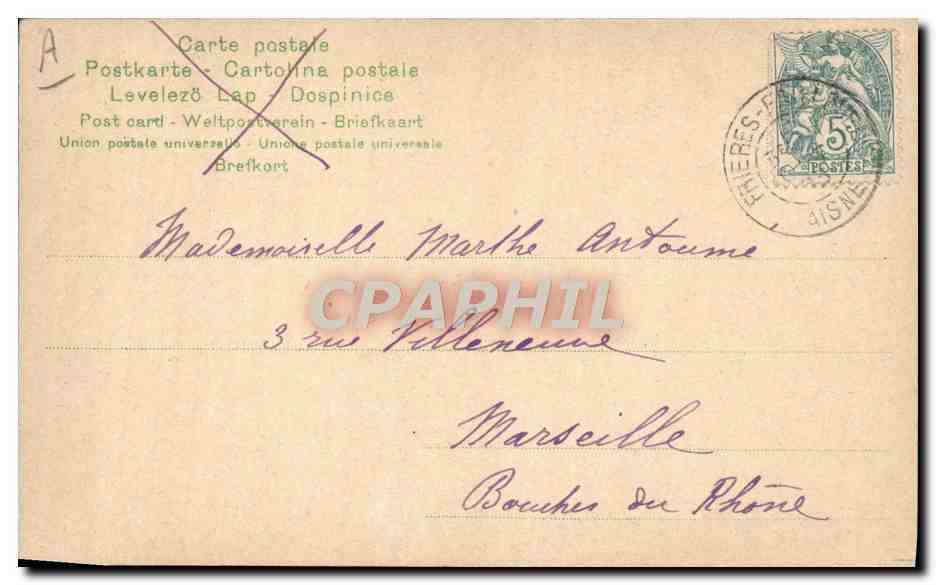 A
Carte postale
Postkarte - Cartolina postale
Levelezö Lap - Dospinice
Post card - Weltpostverein - Briefkaart
Union postale universelle - Unione postale universale
Brefkort
5
POSTES
FRIERES-
AISNE
Mademoiselle Marthe Antoume
CPAPHIL
3 rue Villeneuve
Marseille
Bouches du Rhône